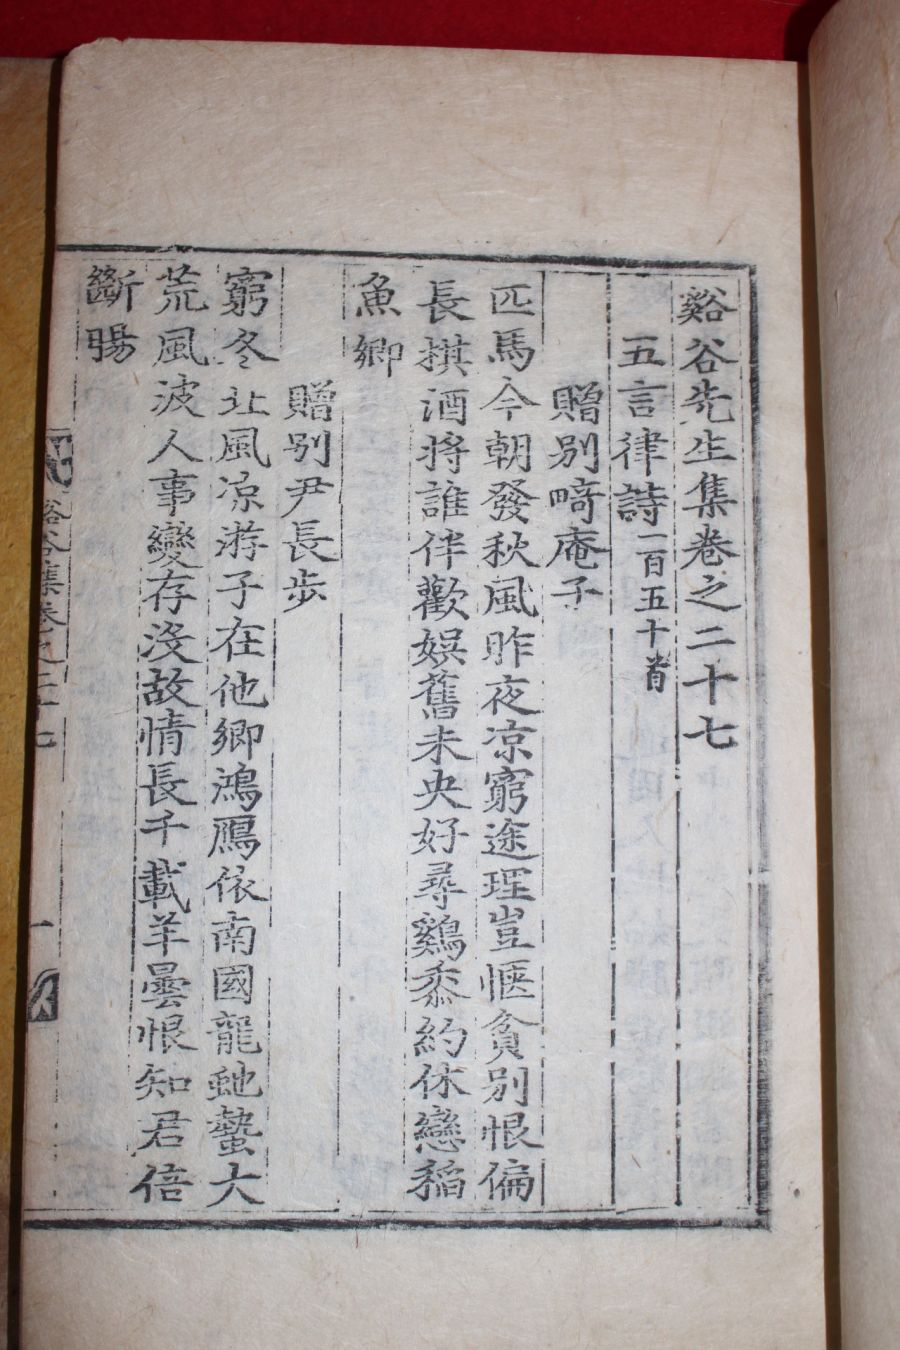 谿谷先生集卷之二十七
五言律詩一百五十首
贈別畸庵子
匹馬今朝發秋風昨夜凉窮途理豈愜貧別恨偏
長棋酒將誰伴歡娛舊未央好尋鷄黍約休戀稻
魚鄉
贈別尹長步
窮冬北風凉游子在他鄉鴻鴈依南國龍虵蟄大
荒風波人事變存沒故情長千載羊曇恨知君倍
斷腸
谿谷集卷之二十七
一